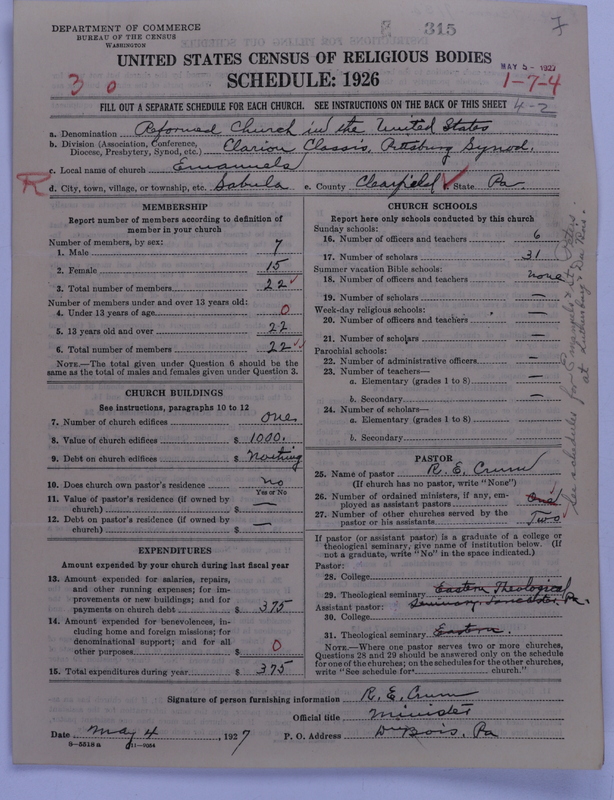 DEPARTMENT OF COMMERCE
BUREAU OF THE CENSUS
WASHINGTON
315
UNITED STATES CENSUS OF RELIGIOUS BODIES
MAY 5 - 1927
SCHEDULE: 1926
3 0
1-7-4
FILL OUT A SEPARATE SCHEDULE FOR EACH CHURCH. SEE INSTRUCTIONS ON THE BACK OF THIS SHEET
4-2
a. Denomination Reformed Church in the United States
b. Division (Association, Conference, Diocese, Presbytery, Synod, etc.) Clarion Classis, Pittsburg Synod.
c. Local name of church Emanuels
R d. City, town, village, or township, etc. Sabula e. County Clearfield State Pa.
MEMBERSHIP
Report number of members according to definition of
member in your church
Number of members, by sex:
1. Male 7
2. Female 15
3. Total number of members 22
Number of members under and over 13 years old:
4. Under 13 years of age 0
5. 13 years old and over 22
6. Total number of members 22
NOTE.—The total given under Question 6 should be
same as the total of males and females given under Question 3.
CHURCH BUILDINGS
See instructions, paragraphs 10 to 12
7. Number of church edifices One
8. Value of church edifices $ 1000.
9. Debt on church edifices $ Northing
10. Does church own pastor's residence no
Yes or No
11. Value of pastor's residence (if owned by
church) $ —
12. Debt on pastor's residence (if owned by
church) $ —
EXPENDITURES
Amount expended by your church during last fiscal year
13. Amount expended for salaries, repairs,
and other running expenses; for im-
provements or new buildings; and for
payments on church debt $ 375
14. Amount expended for benevolences, in-
cluding home and foreign missions; for
denominational support; and for all
other purposes $ 0
15. Total expenditures during year $ 375
CHURCH SCHOOLS
Report here only schools conducted by this church
Sunday schools:
16. Number of officers and teachers 6
17. Number of scholars 31
Summer vacation Bible schools:
18. Number of officers and teachers none
19. Number of scholars —
Week-day religious schools:
20. Number of officers and teachers —
21. Number of scholars —
Parochial schools:
22. Number of administrative officers —
23. Number of teachers—
a. Elementary (grades 1 to 8) —
b. Secondary —
24. Number of scholars—
a. Elementary (grades 1 to 8)
b. Secondary
PASTOR
25. Name of pastor R. E. Crum
(If church has no pastor, write "None")
26. Number of ordained ministers, if any, em-
ployed as assistant pastors One
27. Number of other churches served by the
pastor or his assistants Two
If pastor (or assistant pastor) is a graduate of a college or
theological seminary, give name of institution below. (If
not a graduate, write "No" in the space indicated.)
Pastor:
28. College
29. Theological seminary Eastern Theological
Seminary, Lancaster, Pa.
Assistant pastor:
30. College
31. Theological seminary Eastern.
NOTE.—Where one pastor serves two or more churches,
Questions 28 and 29 should be answered only on the schedule
for one of the churches; on the schedules for the other churches,
write "See schedule for church."
See schedules for
at Luthersburg & Du Bois.
Signature of person furnishing information R. E. Crum
Official title Minister
Date May 4, 1927 P. O. Address DuBois, Pa
8-5518 a 11-9054